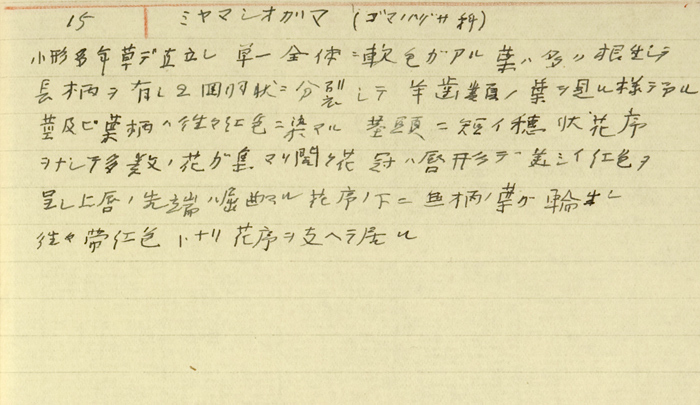 15 ミヤマシオガマ (ゴマノハグサ科)
小形多年草デ直立し 単一 全体ニ軟毛ガアル 葉ハ多ク根生シテ
長柄ヲ有し2回羽状ニ分裂シテ 羊歯類ノ葉ヲ見ル様デアル
茎及ビ葉柄ハ往々紅色ニ染マル 茎頭ニ短イ穂状花序
ヲナシテ多数ノ花が集マリ開ク花冠ハ唇形デ美シイ紅色ヲ
呈し上唇ノ先端ハ屈曲スル 花序ノ下ニ無柄ノ葉が輪生し
往々帯紅色トナリ花序ヲ支ヘテ居ル